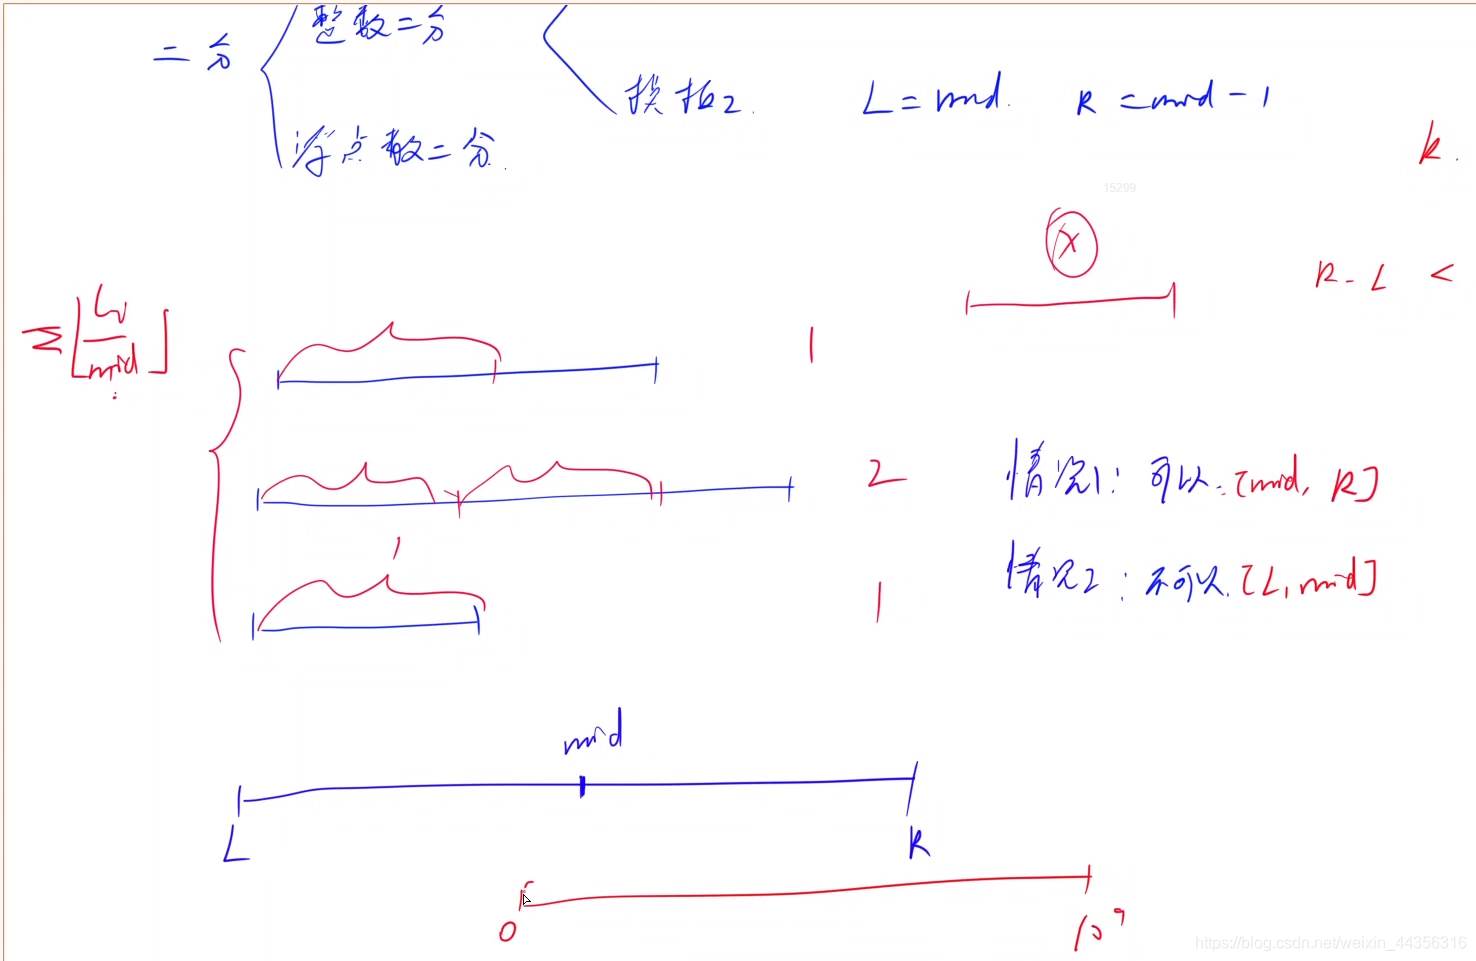 整数二分
二分
模板2. L = mid. R = mid - 1
浮点数二分.
k.
15299
x
R - L <
Σ⌊Li/mid⌋
1
2
情况1: 可以. [mid, R]
情况2: 不可以. [L, mid]
1
mid
L
R
0
10⁹
https://blog.csdn.net/weixin_44356316